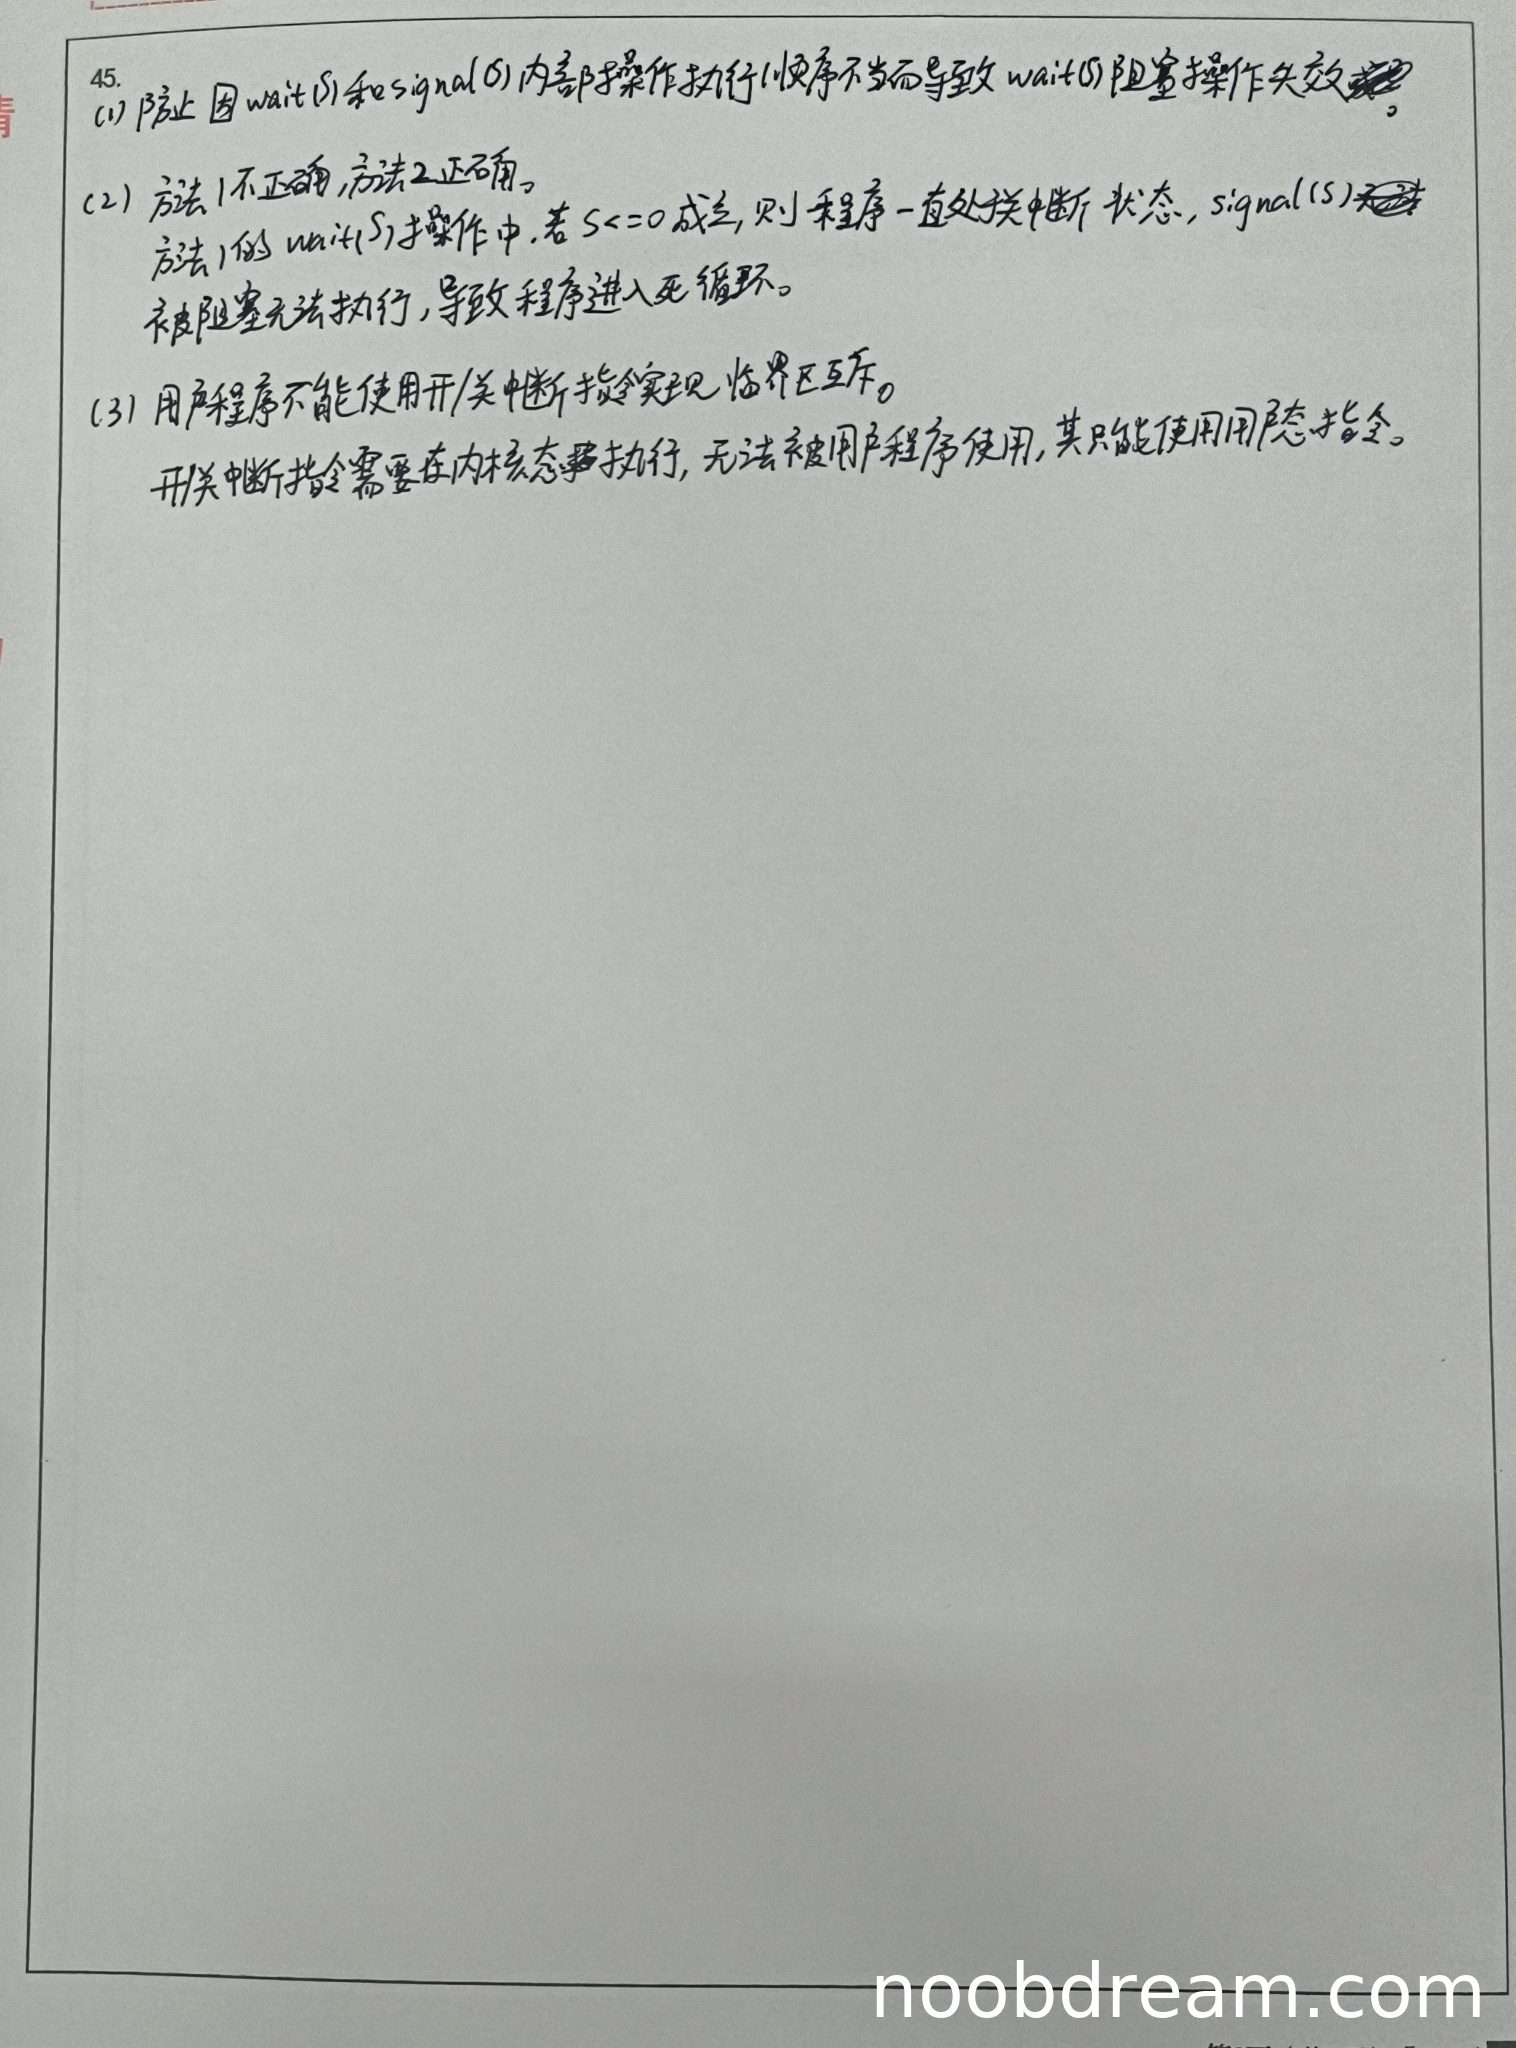 45.
(1) 防止因wait(S)和signal(S)内部操作执行顺序不当而导致wait(S)阻塞操作失效。
(2) 方法1不正确,方法2正确。
方法1的wait(S)操作中,若S<=0成立,则程序一直处于关中断状态,signal(S)
被阻塞无法执行,导致程序进入死循环。
(3) 用户程序不能使用开/关中断指令实现临界区互斥。
开/关中断指令需要在内核态执行,无法被用户程序使用,其只能使用用户态指令。
noobdream.com